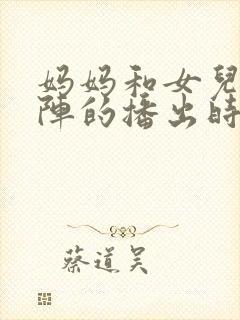 妈妈和女兒
陣的播出時
蔡道吴